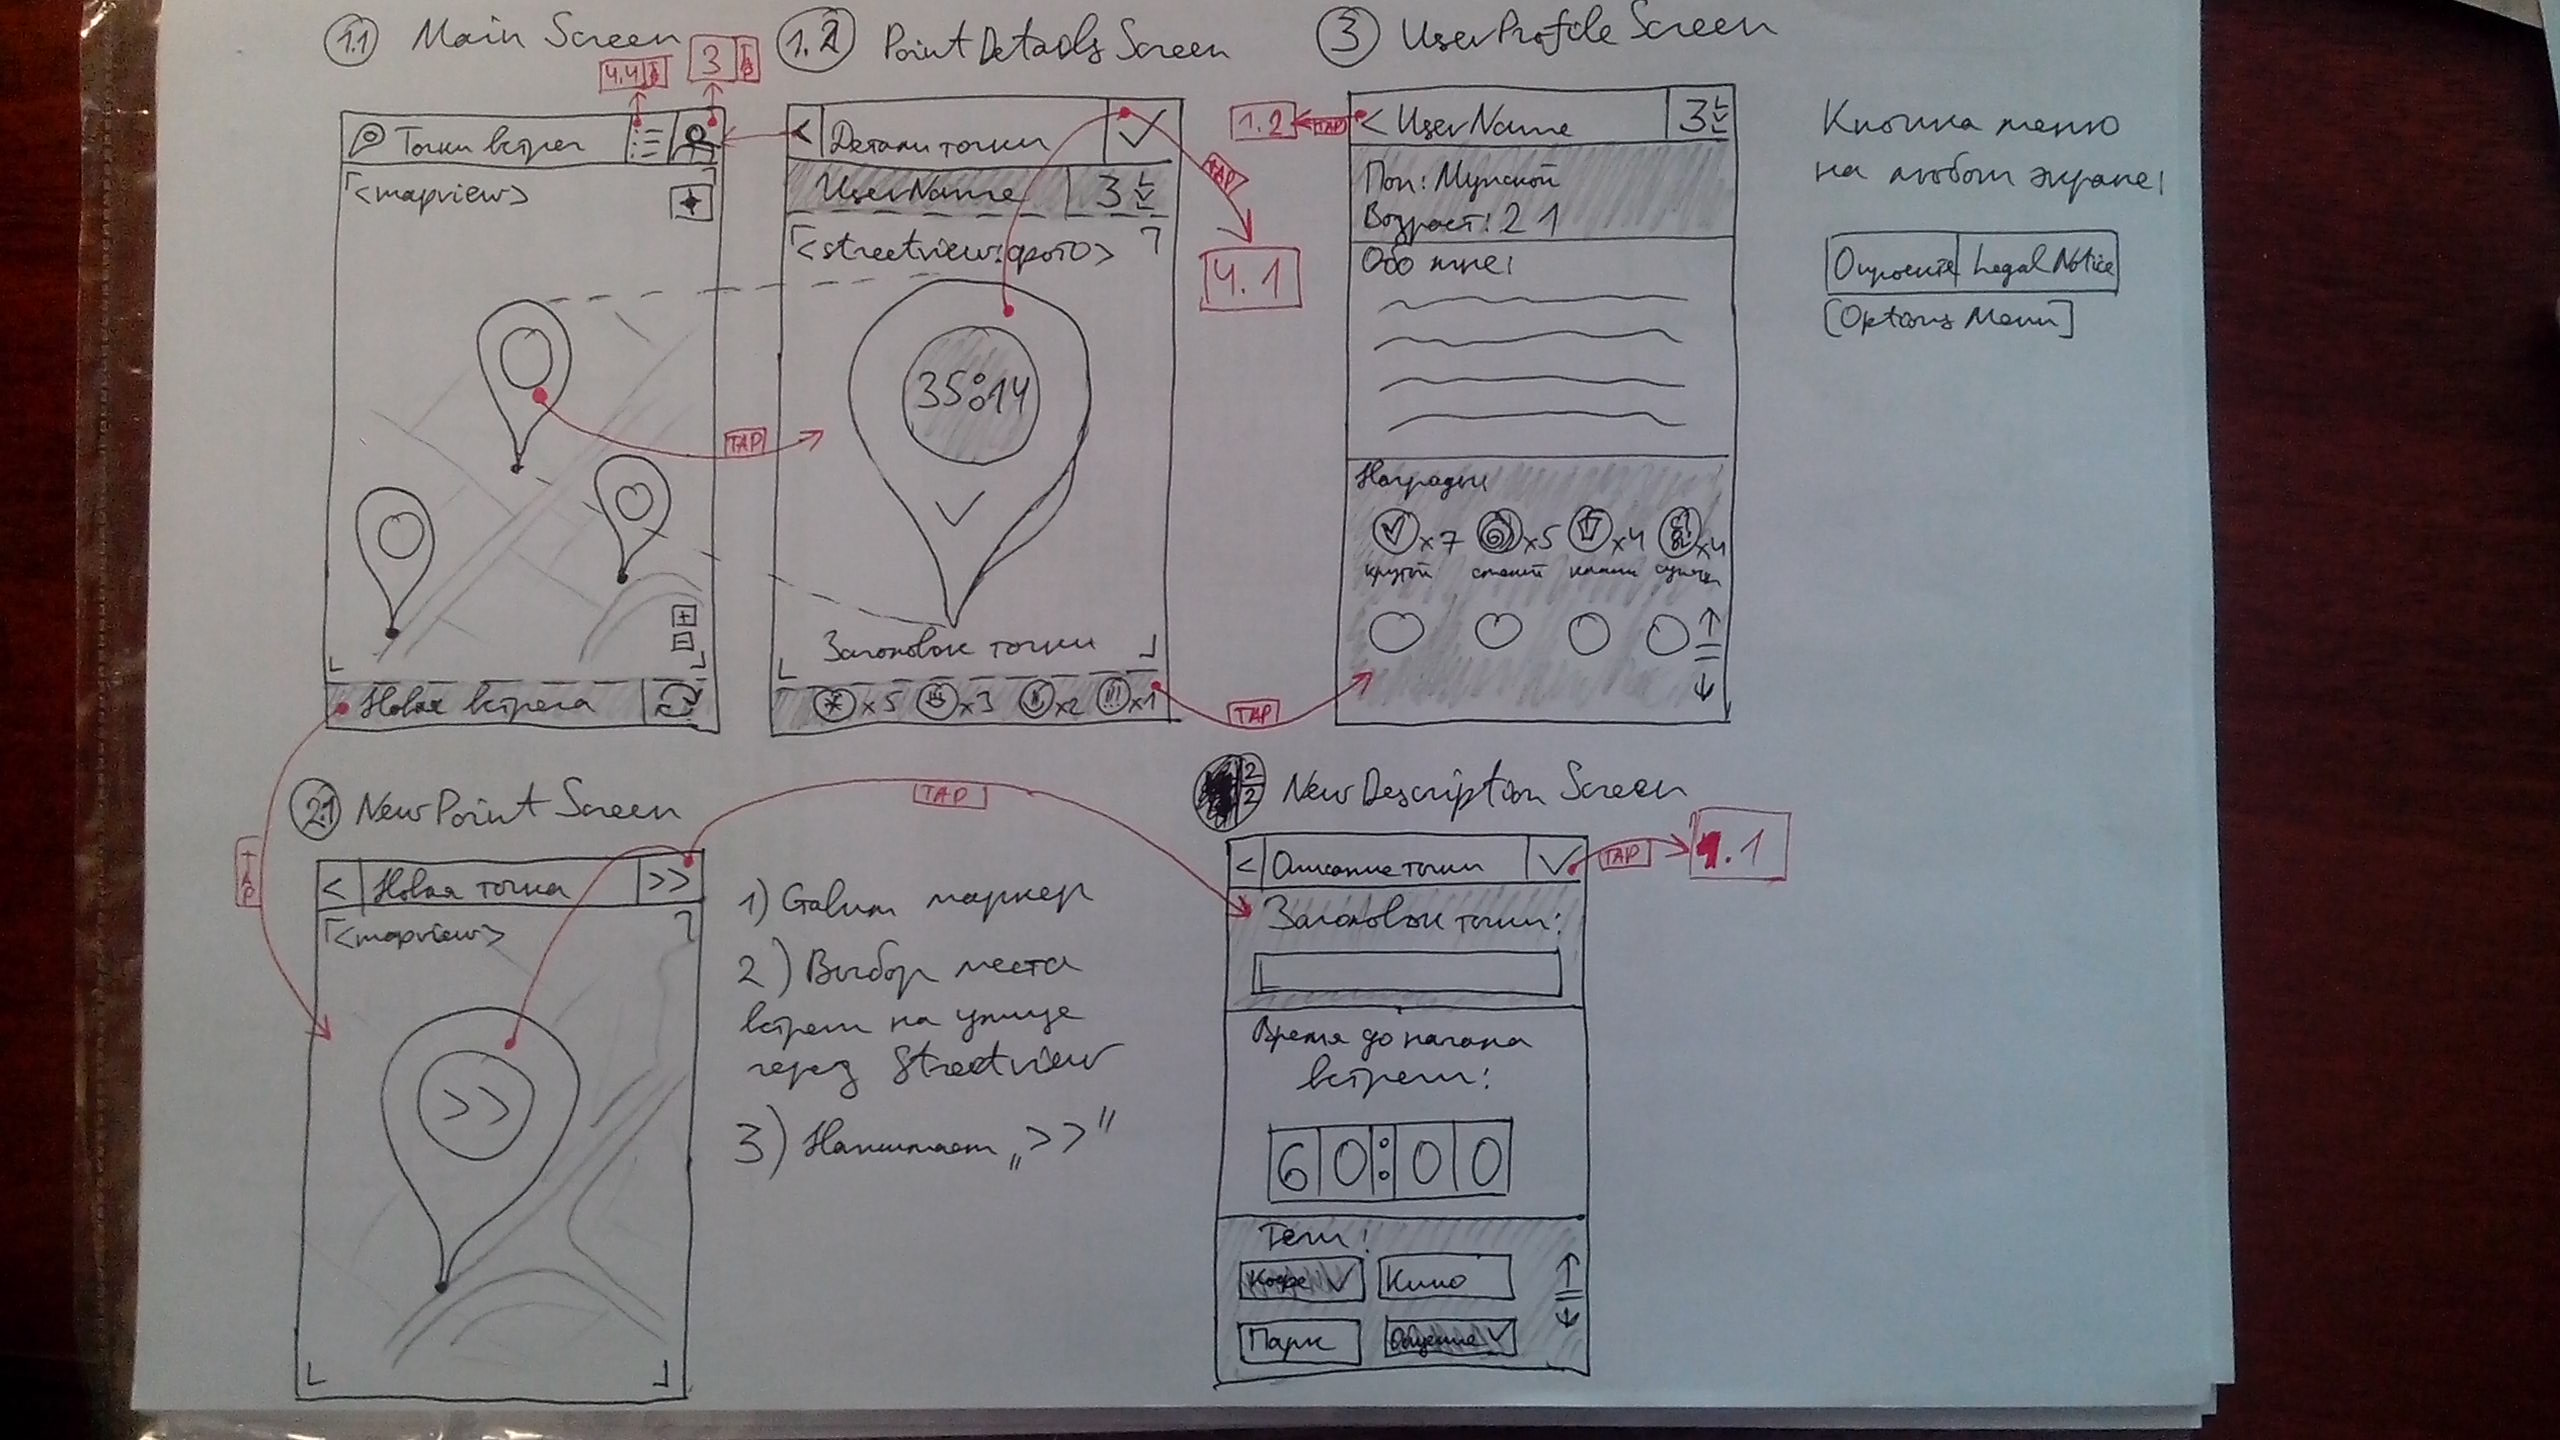 1.1 Main Screen
4.4
3
Точки встреч
<mapview>
TAP
Новая встреча
1.2 PointDetailsScreen
< Детали точки ✓
UserName 3
<streetview:фото>
35:14
✓
Заголовок точки
x5 x3 x2 x1
TAP
4.1
TAP
3 UserProfileScreen
1.2 TAP
< UserName 3
Пол: Мужской
Возраст: 21
Обо мне:
Награды
x7 x5 x4 x4
крутой
Кнопка меню
на любом экране:
Legal Notice
[Options Menu]
TAP
2.1 NewPoint Screen
< Новая точка >>
<mapview>
>>
TAP
1) Galum маркер
2) Выбор места
встречи на улице
через Streetview
3) Нажимает „>>"
2.2 NewDescription Screen
< Описание точки ✓
TAP
4.1
Заголовок точки:
Время до начала
встречи:
60:00
Теги:
Кофе ✓ Кино
Парк Общение ✓